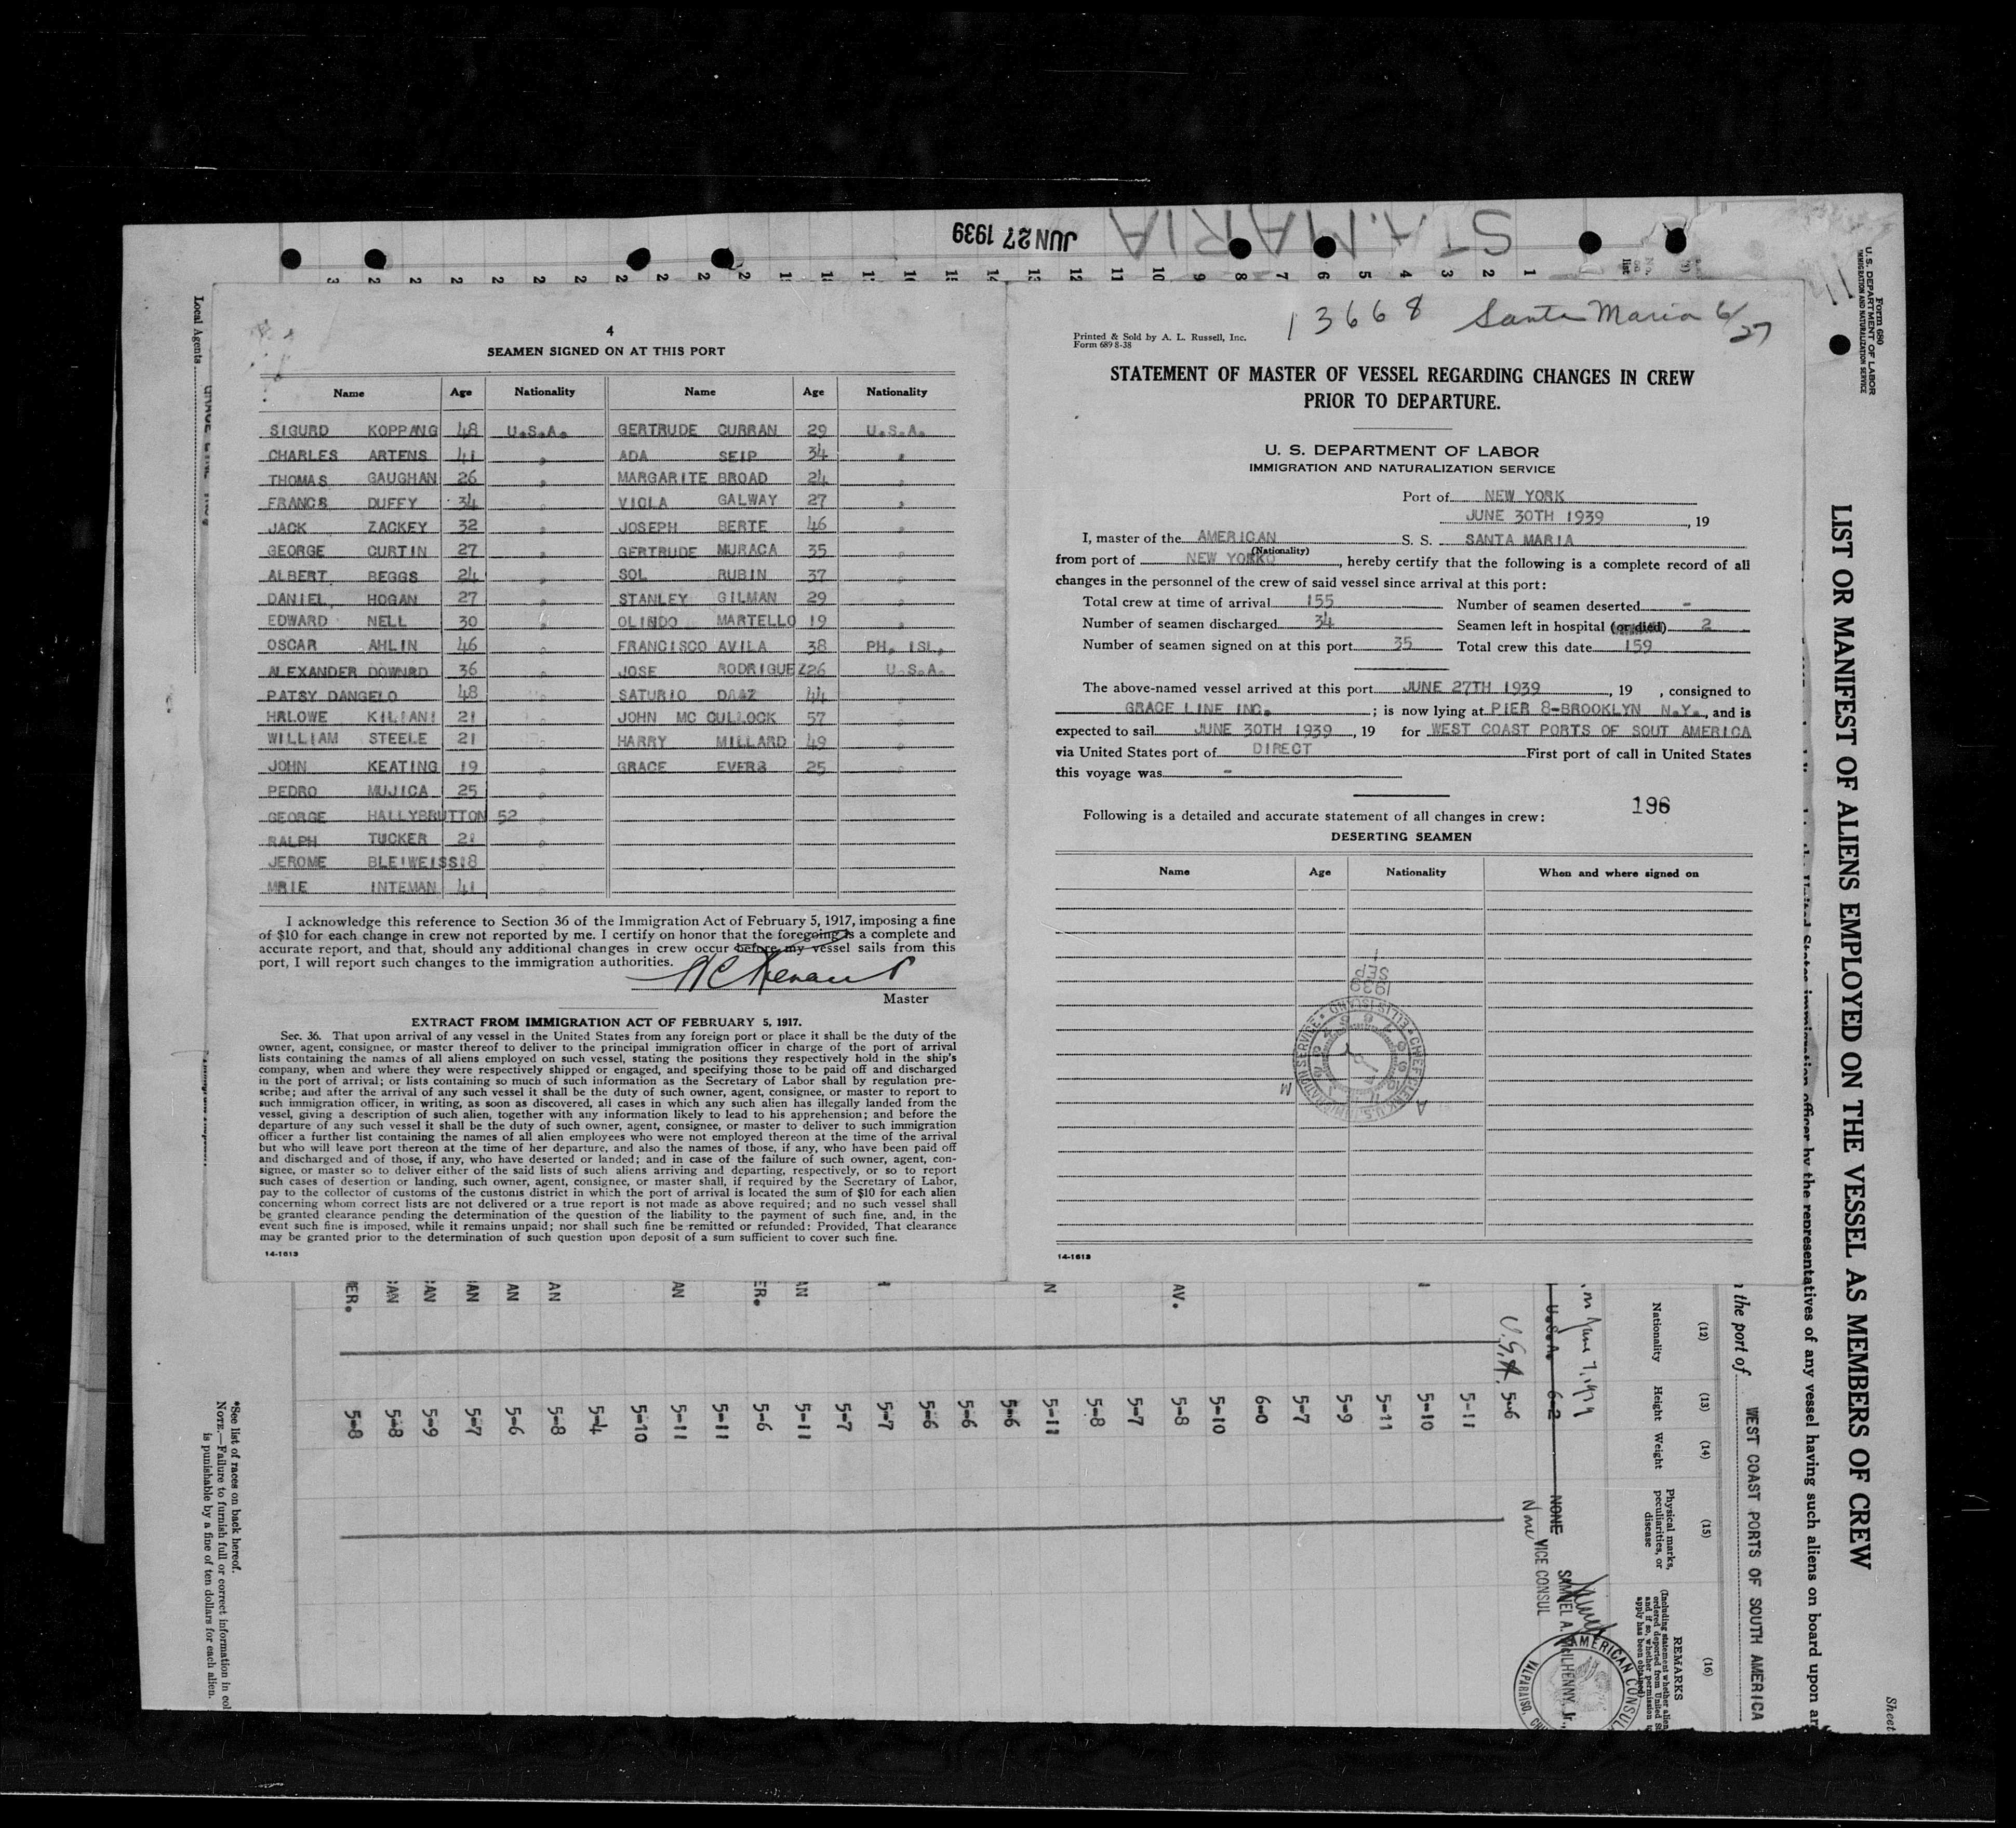 JUN 27 1939
STA.MARIA
4
SEAMEN SIGNED ON AT THIS PORT
Name Age Nationality Name Age Nationality
SIGURD KOPPANG 48 U.S.A. GERTRUDE CURRAN 29 U.S.A.
CHARLES ARTENS 41 " ADA SEIP 34 "
THOMAS GAUGHAN 26 " MARGARITE BROAD 24 "
FRANCS DUFFY 34 " VIOLA GALWAY 27 "
JACK ZACKEY 32 " JOSEPH BERTE 46 "
GEORGE CURTIN 27 " GERTRUDE MURACA 35 "
ALBERT BEGGS 24 " SOL RUBIN 37 "
DANIEL HOGAN 27 " STANLEY GILMAN 29 "
EDWARD NELL 30 " OLINDO MARTELLO 19 "
OSCAR AHLIN 46 " FRANCISCO AVILA 38 PH. ISL.
ALEXANDER DOWNRD 36 " JOSE RODRIGUEZ 26 U.S.A.
PATSY DANGELO 48 " SATURIO DAAZ 44 "
HRLOWE KILIANI 21 " JOHN MC CULLOCK 57 "
WILLIAM STEELE 21 " HARRY MILLARD 49 "
JOHN KEATING 19 " GRACE EVERS 25 "
PEDRO MUJICA 25 "
GEORGE HALLYBRUTTON 52 "
RALPH TUCKER 21 "
JEROME BLEIWEISS 18 "
MRIE INTEMAN 41 "
I acknowledge this reference to Section 36 of the Immigration Act of February 5, 1917, imposing a fine
of $10 for each change in crew not reported by me. I certify on honor that the foregoing is a complete and
accurate report, and that, should any additional changes in crew occur before my vessel sails from this
port, I will report such changes to the immigration authorities.
Master
EXTRACT FROM IMMIGRATION ACT OF FEBRUARY 5, 1917.
Sec. 36. That upon arrival of any vessel in the United States from any foreign port or place it shall be the duty of the
owner, agent, consignee, or master thereof to deliver to the principal immigration officer in charge of the port of arrival
lists containing the names of all aliens employed on such vessel, stating the positions they respectively hold in the ship's
company, when and where they were respectively shipped or engaged, and specifying those to be paid off and discharged
in the port of arrival; or lists containing so much of such information as the Secretary of Labor shall by regulation pre-
scribe; and after the arrival of any such vessel it shall be the duty of such owner, agent, consignee, or master to report to
such immigration officer, in writing, as soon as discovered, all cases in which any such alien has illegally landed from the
vessel, giving a description of such alien, together with any information likely to lead to his apprehension; and before the
departure of any such vessel it shall be the duty of such owner, agent, consignee, or master to deliver to such immigration
officer a further list containing the names of all alien employees who were not employed thereon at the time of the arrival
but who will leave port thereon at the time of her departure, and also the names of those, if any, who have been paid off
and discharged and of those, if any, who have deserted or landed; and in case of the failure of such owner, agent, con-
signee, or master so to deliver either of the said lists of such aliens arriving and departing, respectively, or so to report
such cases of desertion or landing, such owner, agent, consignee, or master shall, if required by the Secretary of Labor,
pay to the collector of customs of the customs district in which the port of arrival is located the sum of $10 for each alien
concerning whom correct lists are not delivered or a true report is not made as above required; and no such vessel shall
be granted clearance pending the determination of the question of the liability to the payment of such fine, and, in the
event such fine is imposed, while it remains unpaid; nor shall such fine be remitted or refunded: Provided, That clearance
may be granted prior to the determination of such question upon deposit of a sum sufficient to cover such fine.
14-1613
13668 Santa Maria 6/27
Printed & Sold by A. L. Russell, Inc.
Form 689 8-38
STATEMENT OF MASTER OF VESSEL REGARDING CHANGES IN CREW
PRIOR TO DEPARTURE.
U. S. DEPARTMENT OF LABOR
IMMIGRATION AND NATURALIZATION SERVICE
Port of NEW YORK
JUNE 30TH 1939, 19
I, master of the AMERICAN S. S. SANTA MARIA
(Nationality)
from port of NEW YORK, hereby certify that the following is a complete record of all
changes in the personnel of the crew of said vessel since arrival at this port:
Total crew at time of arrival 155 Number of seamen deserted -
Number of seamen discharged 34 Seamen left in hospital (or died) 2
Number of seamen signed on at this port 35 Total crew this date 159
The above-named vessel arrived at this port JUNE 27TH 1939, 19 , consigned to
GRACE LINE INC. ; is now lying at PIER 8-BROOKLYN N.Y., and is
expected to sail JUNE 30TH 1939, 19 for WEST COAST PORTS OF SOUT AMERICA
via United States port of DIRECT First port of call in United States
this voyage was -
196
Following is a detailed and accurate statement of all changes in crew:
DESERTING SEAMEN
Name Age Nationality When and where signed on
SEP 1
1939
14-1613
Form 680
U.S. DEPARTMENT OF LABOR
IMMIGRATION AND NATURALIZATION SERVICE
LIST OR MANIFEST OF ALIENS EMPLOYED ON THE VESSEL AS MEMBERS OF CREW
officer by the representatives of any vessel having such aliens on board upon
the port of WEST COAST PORTS OF SOUTH AMERICA
Sheet
(12) (13) (14) (15) (16)
Nationality Height Weight Physical marks, peculiarities, or disease REMARKS
U.S.A. 6-2 NONE
U.S.A. 5-6 None
5-11
5-10
5-11
5-9
5-7
6-0
5-10
5-8
5-7
5-8
5-11
5-6
5-6
5-6
5-7
5-7
5-11
5-6
5-11
5-11
5-10
5-4
5-8
5-6
5-7
5-9
5-8
5-8
VICE CONSUL
AMERICAN CONSUL
VALPARAISO,
Local Agents
*See list of races on back hereof.
NOTE.—Failure to furnish full or correct information in col
is punishable by a fine of ten dollars for each alien.